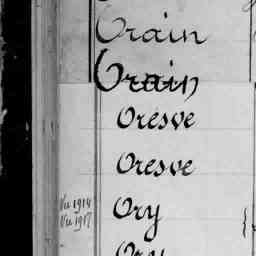 Orain
Orain
Oresve
Oresve
Vu 1914
Vu 1917
Ory
Ory